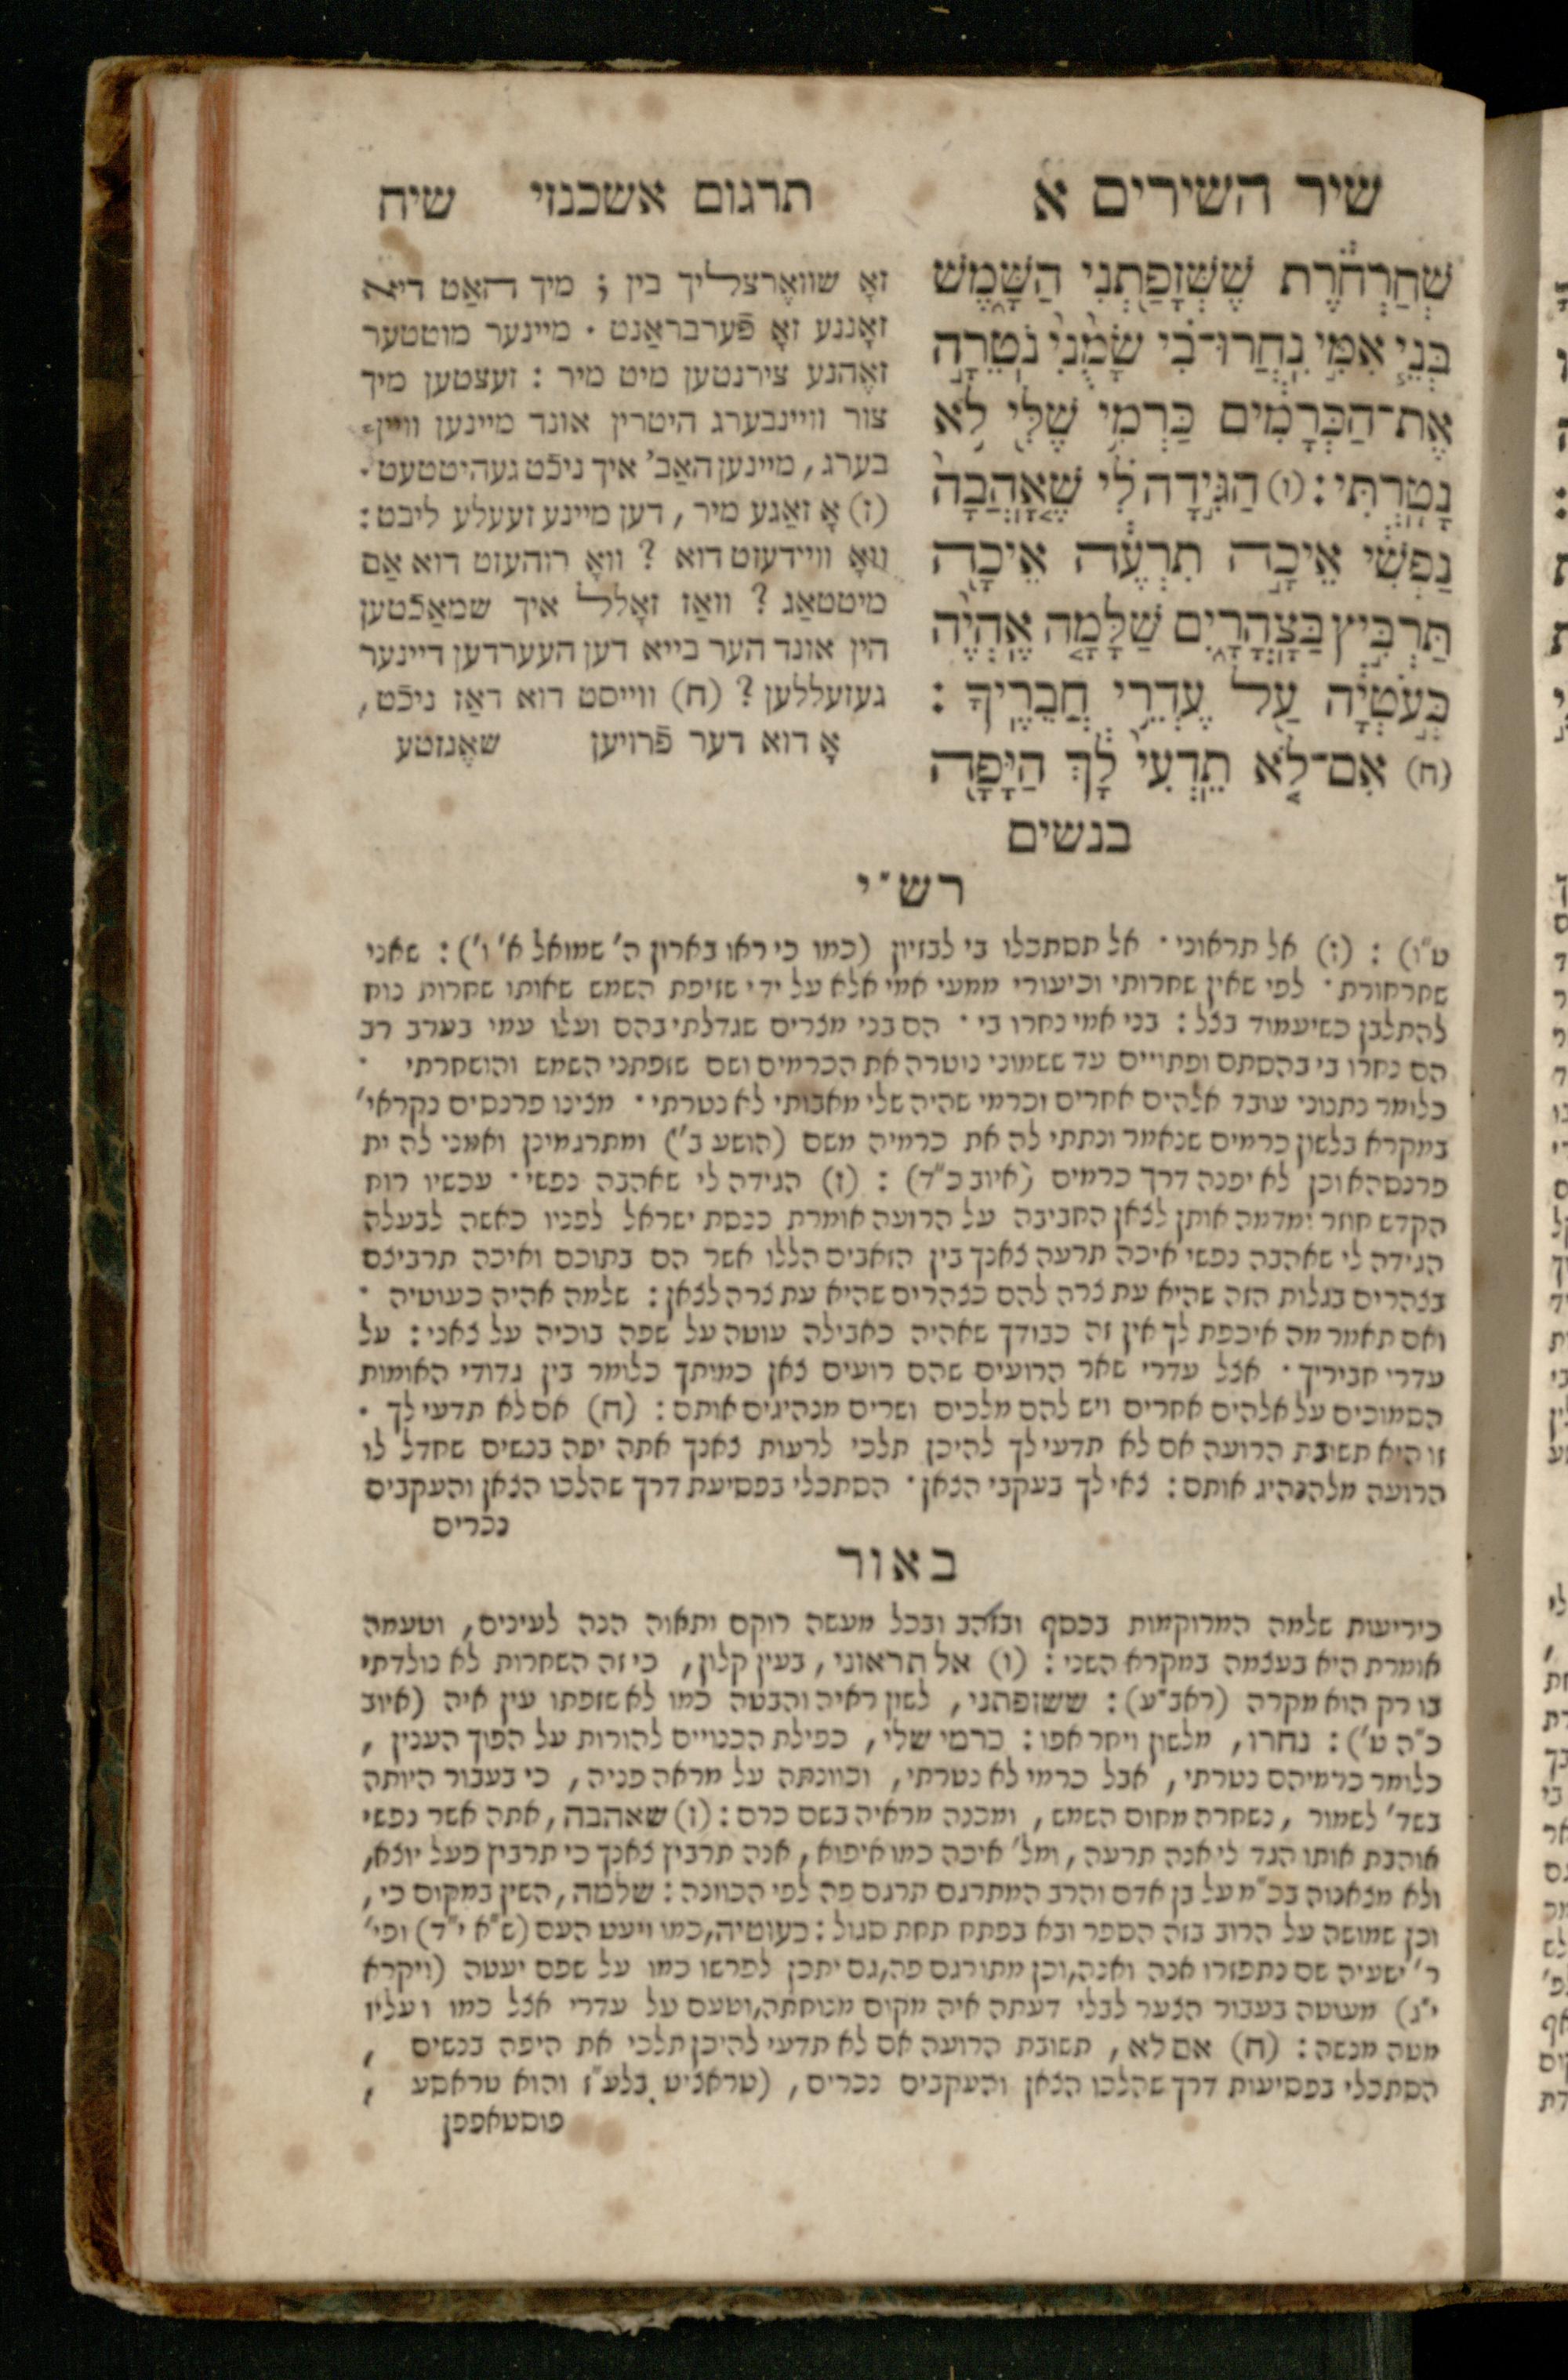 שיר השירים א
שְׁחַרְחֹרֶת שֶׁשְּׁזָפַתְנִי הַשָּׁמֶשׁ
בְּנֵי אִמִּי נִחֲרוּ־בִי שָׂמֻנִי נֹטֵרָה
אֶת־הַכְּרָמִים כַּרְמִי שֶׁלִּי לֹא
נָטָרְתִּי: (ו) הַגִּידָה לִּי שֶׁאָהֲבָה
נַפְשִׁי אֵיכָה תִרְעֶה אֵיכָה
תַּרְבִּיץ בַּצָּהֳרָיִם שַׁלָּמָה אֶהְיֶה
כְּעֹטְיָה עַל עֶדְרֵי חֲבֵרֶיךָ:
(ח) אִם־לֹא תֵדְעִי לָךְ הַיָּפָה
בנשים
תרגום אשכנזי שיח
זאָ שוואֶרצליך בין ; מיך האַט דיא
זאָננע זאָ פֿערבראַנט . מיינער מוטטער
זאֶהנע צירנטען מיט מיר : זעצטען מיך
צור וויינבערג היטרין אונד מיינען וויין-
בערג, מיינען האַב' איך ניכט געהיטטעט.
(ז) אָ זאַגע מיר, דען מיינע זעעלע ליבט:
וואָ וויידעזט דוא ? וואָ רוהעזט דוא אַם
מיטטאַג ? וואַז זאָלל איך שמאַכטען
הין אונד הער בייא דען העערדען דיינער
געזעללען ? (ח) ווייסט דוא דאַז ניכֿט,
אָ דוא דער פֿרויען שאֶנזטע
רש"י
ט"ו) : (ו) אל תראוני . אל תסתכלו בי לבזיון (כמו כי ראו בארון ה' שמואל א' ו') : שאני
שחרחורת . לפי שאין שחרותי וכיעורי ממעי אמי אלא על ידי שזיפת השמש שאותו שחרות נוח
להתלבן כשיעמוד בצל : בני אמי נחרו בי . הם בני מצרים שגדלתי בהם ועלו עמי בערב רב
הם נחרו בי בהסתם ופתויים עד ששמוני נוטרה את הכרמים ושם שזפתני השמש והושחרתי .
כלומר נתנוני עובד אלהים אחרים וכרמי שהיה שלי מאבותי לא נטרתי . מצינו פרנסים נקראי'
במקרא בלשון כרמים שנאמר ונתתי לה את כרמיה משם (הושע ב') ומתרגמינן ואמני לה ית
פרנסהא וכן לא יפנה דרך כרמים (איוב כ"ד) : (ז) הגידה לי שאהבה נפשי . עכשיו רוח
הקדש חוזר ומדמה אותן לצאן החביבה על הרועה אומרת כנסת ישראל לפניו כאשה לבעלה
הגידה לי שאהבה נפשי איכה תרעה צאנך בין הזאבים הללו אשר הם בתוכם ואיכה תרביצם
בצהרים בגלות הזה שהיא עת צרה להם כצהרים שהיא עת צרה לצאן : שלמה אהיה כעוטיה .
ואם תאמר מה איכפת לך אין זה כבודך שאהיה כאבילה עוטה על שפה בוכיה על צאני : על
עדרי חביריך . אצל עדרי שאר הרועים שהם רועים צאן כמותך כלומר בין גדודי האומות
הסמוכים על אלהים אחרים ויש להם מלכים ושרים מנהיגים אותם : (ח) אם לא תדעי לך .
זו היא תשובת הרועה אם לא תדעי לך להיכן תלכי לרעות צאנך אתה יפה בנשים שחדל לו
הרועה מלהנהיג אותם : צאי לך בעקבי הצאן . הסתכלי בפסיעת דרך שהלכו הצאן והעקבים
נכרים
באור
כיריעות שלמה המרוקמות בכסף ובזהב ובכל מעשה רוקם ותאוה הנה לעינים, וטעמה
אומרת היא בעצמה במקרא השני : (ו) אל תראוני, בעין קלון, כי זה השחרות לא נולדתי
בו רק הוא מקרה (ראב"ע) : ששזפתני, לשון ראיה והבטה כמו לא שזפתו עין איה (איוב
כ"ה ט') : נחרו, מלשון ויחר אפו : כרמי שלי, כפילת הכנויים להורות על הפוך הענין,
כלומר כרמיהם נטרתי, אבל כרמי לא נטרתי, וכוונתה על מראה פניה, כי בעבור היותה
בשד' לשמור, נשחרת מחום השמש, ומכנה מראיה בשם כרם : (ז) שאהבה, אתה אשר נפשי
אוהבת אותו הגד לי אנה תרעה, ומל' איכה כמו איפוא, אנה תרבין צאנך כי תרבין פעל יוצא,
ולא מצאנוה בכ"מ על בן אדם והרב המתרגם תרגם פה לפי הכוונה : שלמה, השין במקום כי,
וכן שמושה על הרוב בזה הספר ובא בפתח תחת סגול : כעוטיה, כמו ויעט העם (ש"א י"ד) ופי'
ר' ישעיה שם נתפזרו אנה ואנה, וכן מתורגם פה, גם יתכן לפרשו כמו על שפם יעטה (ויקרא
י"ג) מעוטה בעבור הצער לבלי דעתה איה מקום מנוחתה, וטעם על עדרי אצל כמו ועליו
מטה מנשה : (ח) אם לא, תשובת הרועה אם לא תדעי להיכן תלכי את היפה בנשים,
הסתכלי בפסיעות דרך שהלכו הצאן והעקבים נכרים, (טראציט בלע"ז והוא טראסע,
פוסטאפפן